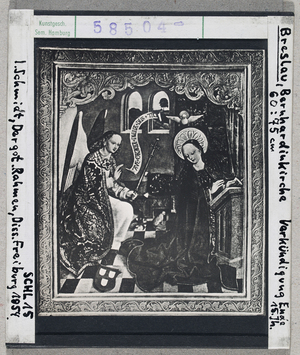 Kunstgesch.
Sem. Hamburg
58504
Breslau, Bernhardinkirche Verkündigung Ende
60:75 cm
15. Jh.
J. Schmidt, Der got. Rahmen, Diss. Freiburg 1951.
SCHL 15